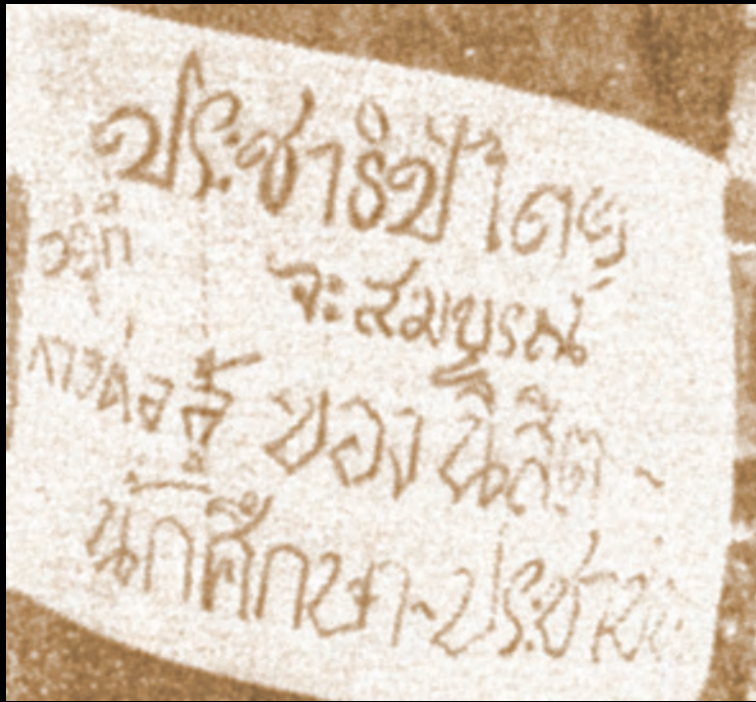 ประชาธิปไตย
จะสมบูรณ์
การต่อสู้ ของ นิสิต -
นักศึกษา - ประชาชน